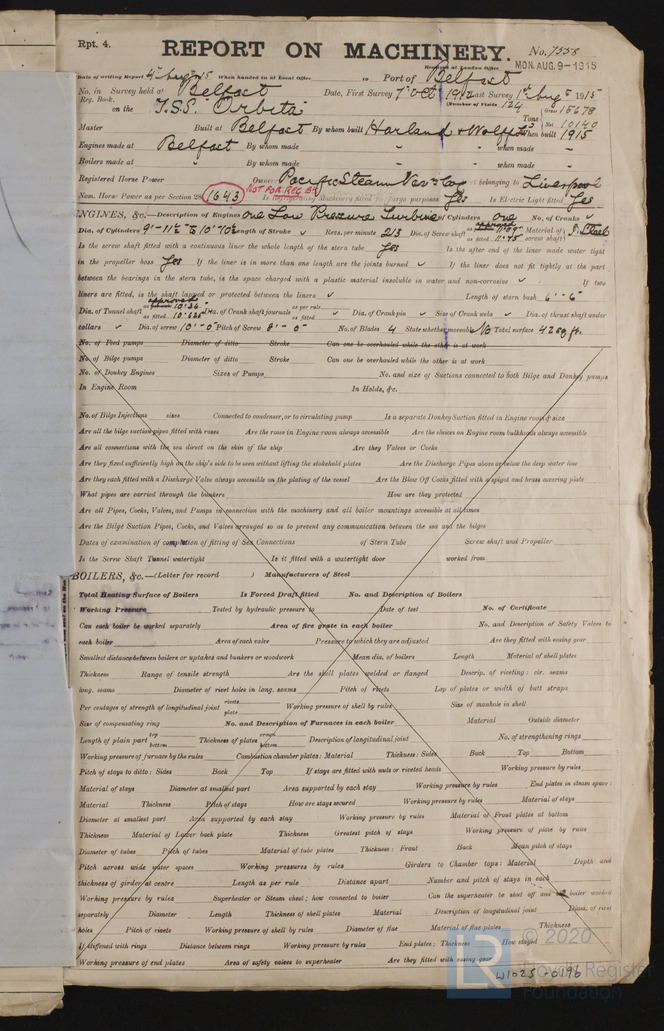 Rpt. 4.
REPORT ON MACHINERY.
No. 7358
Received at London Office
MON. AUG. 9-1915
Date of writing Report 19 15 When handed in at Local Office to Port of Belfast
No. in Survey held at Belfast Date, First Survey 7th Oct 1912 Last Survey 1st Aug 1915
Reg. Book. (Number of Visits 124
on the T.S.S. "Orbita" Tons Gross 15678
Net 10140
Master Built at Belfast By whom built Harland & Wolff Ltd When built 1915
Engines made at Belfast By whom made " when made "
Boilers made at " By whom made " when made "
Registered Horse Power Owners Pacific Steam Nav. Coy Port belonging to Liverpool
Nom. Horse Power as per Section 28 1643 NOT FOR REG BK Is Refrigerating Machinery fitted for cargo purposes Yes Is Electric Light fitted Yes
ENGINES, &c.—Description of Engines One Low Pressure Turbine No. of Cylinders one No. of Cranks
Dia. of Cylinders Length of Stroke Revs. per minute 213 Dia. of Screw shaft as approved 11.99 as fitted Material of screw shaft
Is the screw shaft fitted with a continuous liner the whole length of the stern tube Yes Is the after end of the liner made water tight
in the propeller boss Yes If the liner is in more than one length are the joints burned If the liner does not fit tightly at the part
between the bearings in the stern tube, is the space charged with a plastic material insoluble in water and non-corrosive If two
liners are fitted, is the shaft lapped or protected between the liners Length of stern bush 6'-6"
Dia. of Tunnel shaft as approved as fitted 10.625 Dia. of Crank shaft journals as per rule as fitted Dia. of Crank pin Size of Crank webs Dia. of thrust shaft under
collars Dia. of screw 10'-0" Pitch of Screw 8'-0" No. of Blades 4 State whether moveable No Total surface 42 sq ft.
No. of Feed pumps Diameter of ditto Stroke Can one be overhauled while the other is at work
No. of Bilge pumps Diameter of ditto Stroke Can one be overhauled while the other is at work
No. of Donkey Engines Sizes of Pumps No. and size of Suctions connected to both Bilge and Donkey pumps
In Engine Room In Holds, &c.
No. of Bilge Injections sizes Connected to condenser, or to circulating pump Is a separate Donkey Suction fitted in Engine room & size
Are all the bilge suction pipes fitted with roses Are the roses in Engine room always accessible Are the sluices on Engine room bulkheads always accessible
Are all connections with the sea direct on the skin of the ship Are they Valves or Cocks
Are they fixed sufficiently high on the ship's side to be seen without lifting the stokehold plates Are the Discharge Pipes above or below the deep water line
Are they each fitted with a Discharge Valve always accessible on the plating of the vessel Are the Blow Off Cocks fitted with a spigot and brass covering plate
What pipes are carried through the bunkers How are they protected
Are all Pipes, Cocks, Valves, and Pumps in connection with the machinery and all boiler mountings accessible at all times
Are the Bilge Suction Pipes, Cocks, and Valves arranged so as to prevent any communication between the sea and the bilges
Dates of examination of completion of fitting of Sea Connections of Stern Tube Screw shaft and Propeller
Is the Screw Shaft Tunnel watertight Is it fitted with a watertight door worked from
BOILERS, &c.—(Letter for record ) Manufacturers of Steel
Total Heating Surface of Boilers Is Forced Draft fitted No. and Description of Boilers
Working Pressure Tested by hydraulic pressure to Date of test No. of Certificate
Can each boiler be worked separately Area of fire grate in each boiler No. and Description of Safety Valves to
each boiler Area of each valve Pressure to which they are adjusted Are they fitted with easing gear
Smallest distance between boilers or uptakes and bunkers or woodwork Mean dia. of boilers Length Material of shell plates
Thickness Range of tensile strength Are the shell plates welded or flanged Descrip. of riveting: cir. seams
long. seams Diameter of rivet holes in long. seams Pitch of rivets Lap of plates or width of butt straps
Per centages of strength of longitudinal joint rivets plate Working pressure of shell by rules Size of manhole in shell
Size of compensating ring No. and Description of Furnaces in each boiler Material Outside diameter
Length of plain part top bottom Thickness of plates crown bottom Description of longitudinal joint No. of strengthening rings
Working pressure of furnace by the rules Combustion chamber plates: Material Thickness: Sides Back Top Bottom
Pitch of stays to ditto: Sides Back Top If stays are fitted with nuts or riveted heads Working pressure by rules
Material of stays Diameter at smallest part Area supported by each stay Working pressure by rules End plates in steam space:
Material Thickness Pitch of stays How are stays secured Working pressure by rules Material of stays
Diameter at smallest part Area supported by each stay Working pressure by rules Material of Front plates at bottom
Thickness Material of Lower back plate Thickness Greatest pitch of stays Working pressure of plate by rules
Diameter of tubes Pitch of tubes Material of tube plates Thickness: Front Back Mean pitch of stays
Pitch across wide water spaces Working pressures by rules Girders to Chamber tops: Material Depth and
thickness of girder at centre Length as per rule Distance apart Number and pitch of stays in each
Working pressure by rules Superheater or Steam chest; how connected to boiler Can the superheater be shut off and the boiler worked
separately Diameter Length Thickness of shell plates Material Description of longitudinal joint Diam. of rivet
holes Pitch of rivets Working pressure of shell by rules Diameter of flue Material of flue plates Thickness
If stiffened with rings Distance between rings Working pressure by rules End plates: Thickness How stayed
Working pressure of end plates Area of safety valves to superheater Are they fitted with easing gear
W1025-0196
© 2020
Lloyd's Register
Foundation
LR